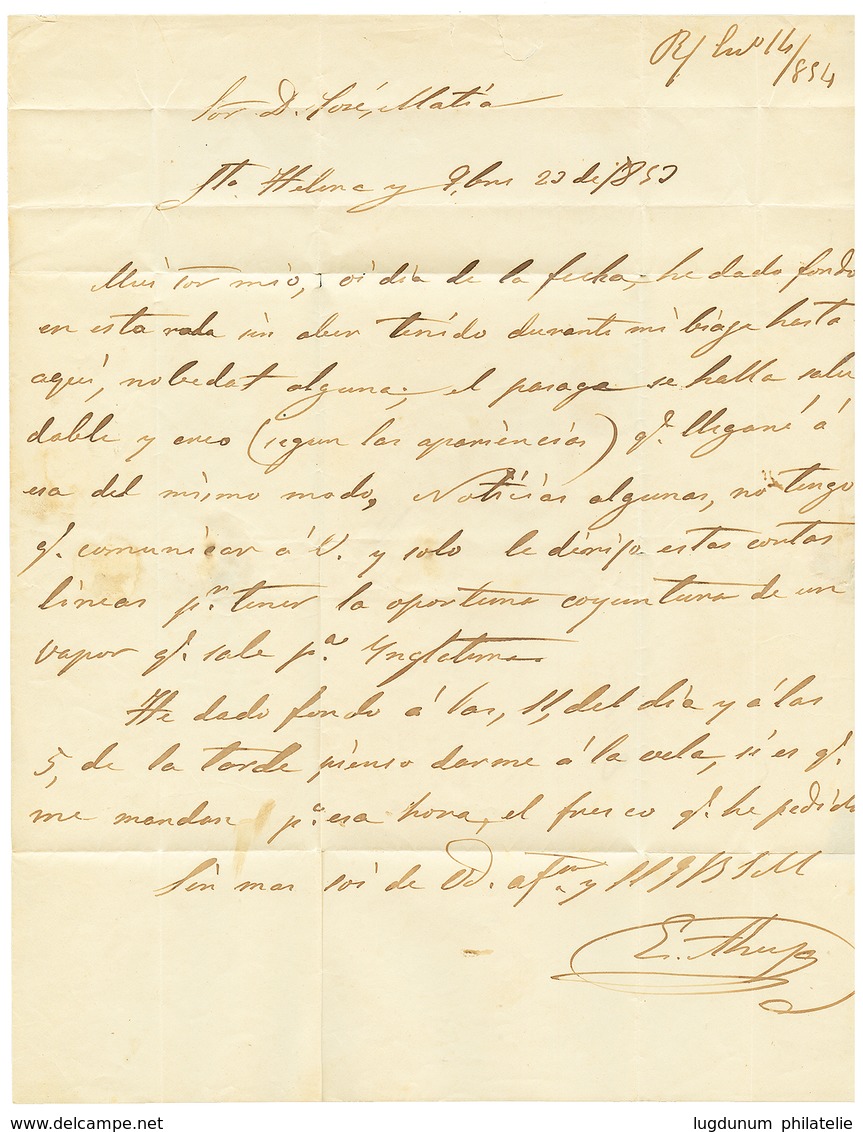 R/ En.º 14/854
Sor. D. José, Matia
Sta. Helena y 9,bre 23 de,/853
Mui sor mio, oi dia de la fecha, he dado fondo
en esta rada sin aber tenido durante mi biage hasta
aqui, nobedat alguna; el pasage se halla salu
dable y creo (segun las apariencias) q.e llegaré á
esa del mismo modo, Noticias algunas, no tengo
q.e comunicar á V. y solo le dirijo estas cortas
lineas p.r tener la oportuna coyuntura de un
vapor q.e sale p.a Ynglaterra
He dado fondo á las, 11, del dia y á las
5, de la tarde pienso darme á la vela, si es q.e
me mandan p.a esa hora, el fresco q.e he pedido
Sin mas soi de Vd. af.mo y SSQBSM
E.
www.delcampe.net
lugdunum philatelie